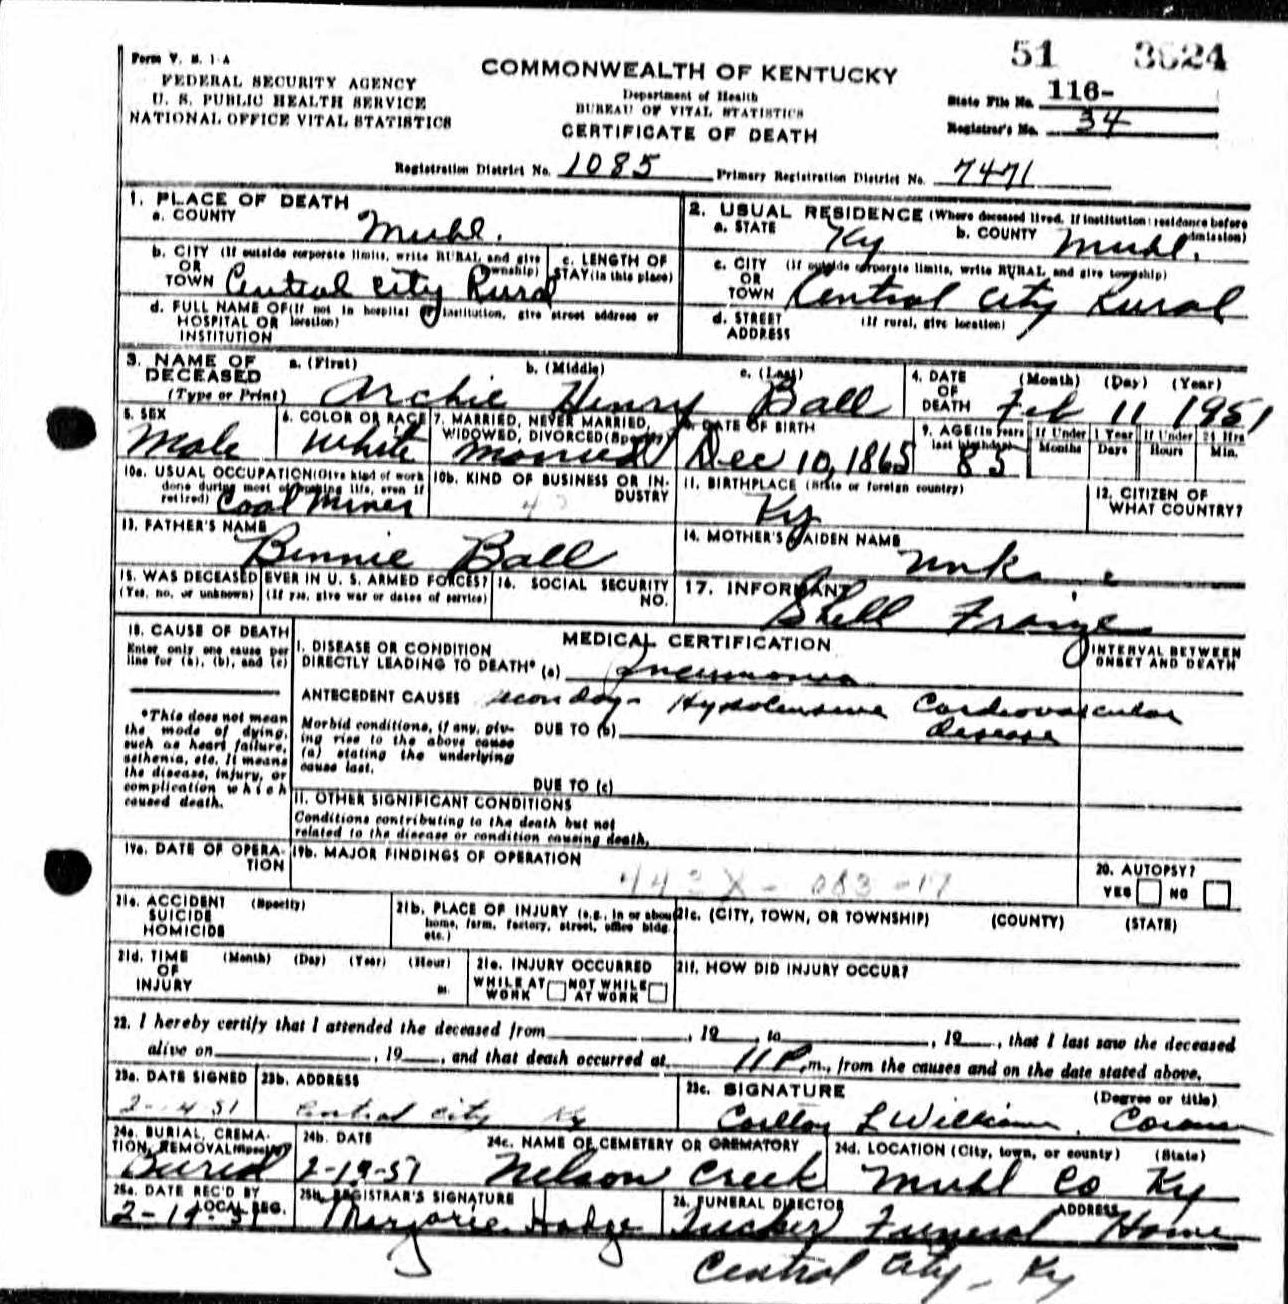 51 3624
Form V. S. 1-A
FEDERAL SECURITY AGENCY
U. S. PUBLIC HEALTH SERVICE
NATIONAL OFFICE VITAL STATISTICS
COMMONWEALTH OF KENTUCKY
Department of Health
BUREAU OF VITAL STATISTICS
CERTIFICATE OF DEATH
State File No. 116-
Registrar's No. 34
Registration District No. 1085 Primary Registration District No. 7471
1. PLACE OF DEATH
a. COUNTY Muhl.
b. CITY (If outside corporate limits, write RURAL and give township)
OR
TOWN Central City Rural
c. LENGTH OF
STAY (in this place)
d. FULL NAME OF (If not in hospital or institution, give street address or
HOSPITAL OR location)
INSTITUTION
2. USUAL RESIDENCE (Where deceased lived. If institution: residence before
admission)
a. STATE Ky b. COUNTY Muhl.
c. CITY (If outside corporate limits, write RURAL and give township)
OR
TOWN Central City Rural
d. STREET (If rural, give location)
ADDRESS
3. NAME OF a. (First) b. (Middle) c. (Last)
DECEASED
(Type or Print) Archie Henry Ball
4. DATE (Month) (Day) (Year)
OF
DEATH Feb 11 1951
5. SEX
Male
6. COLOR OR RACE
White
7. MARRIED, NEVER MARRIED,
WIDOWED, DIVORCED (Specify)
Married
8. DATE OF BIRTH
Dec 10, 1865
9. AGE (In years
last birthday)
85
If Under 1 Year
Months Days
If Under 24 Hrs
Hours Min.
10a. USUAL OCCUPATION (Give kind of work
done during most of working life, even if
retired) Coal Miner
10b. KIND OF BUSINESS OR IN-
DUSTRY
11. BIRTHPLACE (State or foreign country)
Ky
12. CITIZEN OF
WHAT COUNTRY?
13. FATHER'S NAME
Binnie Ball
14. MOTHER'S MAIDEN NAME
Unk
15. WAS DECEASED EVER IN U. S. ARMED FORCES?
(Yes, no, or unknown) (If yes, give war or dates of service)
16. SOCIAL SECURITY
NO.
17. INFORMANT
Shell
18. CAUSE OF DEATH
Enter only one cause per
line for (a), (b), and (c)
*This does not mean
the mode of dying,
such as heart failure,
asthenia, etc. It means
the disease, injury, or
complication which
caused death.
MEDICAL CERTIFICATION
INTERVAL BETWEEN
ONSET AND DEATH
I. DISEASE OR CONDITION
DIRECTLY LEADING TO DEATH* (a) Pneumonia
ANTECEDENT CAUSES Secondary - Hypotensive Cardiovascular
Morbid conditions, if any, giv-
ing rise to the above cause
(a) stating the underlying
cause last.
DUE TO (b) disease
DUE TO (c)
II. OTHER SIGNIFICANT CONDITIONS
Conditions contributing to the death but not
related to the disease or condition causing death.
19a. DATE OF OPERA-
TION
19b. MAJOR FINDINGS OF OPERATION
443X - 083 - 17
20. AUTOPSY?
YES NO
21a. ACCIDENT (Specify)
SUICIDE
HOMICIDE
21b. PLACE OF INJURY (e.g., in or about
home, farm, factory, street, office bldg.
etc.)
21c. (CITY, TOWN, OR TOWNSHIP) (COUNTY) (STATE)
21d. TIME (Month) (Day) (Year) (Hour)
OF
INJURY m.
21e. INJURY OCCURRED
WHILE AT NOT WHILE
WORK AT WORK
21f. HOW DID INJURY OCCUR?
22. I hereby certify that I attended the deceased from , 19 , to , 19 , that I last saw the deceased
alive on , 19 , and that death occurred at 11 P. m., from the causes and on the date stated above.
23a. DATE SIGNED
23b. ADDRESS
Central City Ky
23c. SIGNATURE (Degree or title)
Carlton L Williams, Coroner
24a. BURIAL, CREMA-
TION, REMOVAL (Specify)
Buried
24b. DATE
24c. NAME OF CEMETERY OR CREMATORY
Nelson Creek
24d. LOCATION (City, town, or county) (State)
Muhl Co Ky
25a. DATE REC'D BY
LOCAL REG.
2-14-51
25b. REGISTRAR'S SIGNATURE
Marjorie Hodge
26. FUNERAL DIRECTOR ADDRESS
Tucker Funeral Home
Central City - Ky